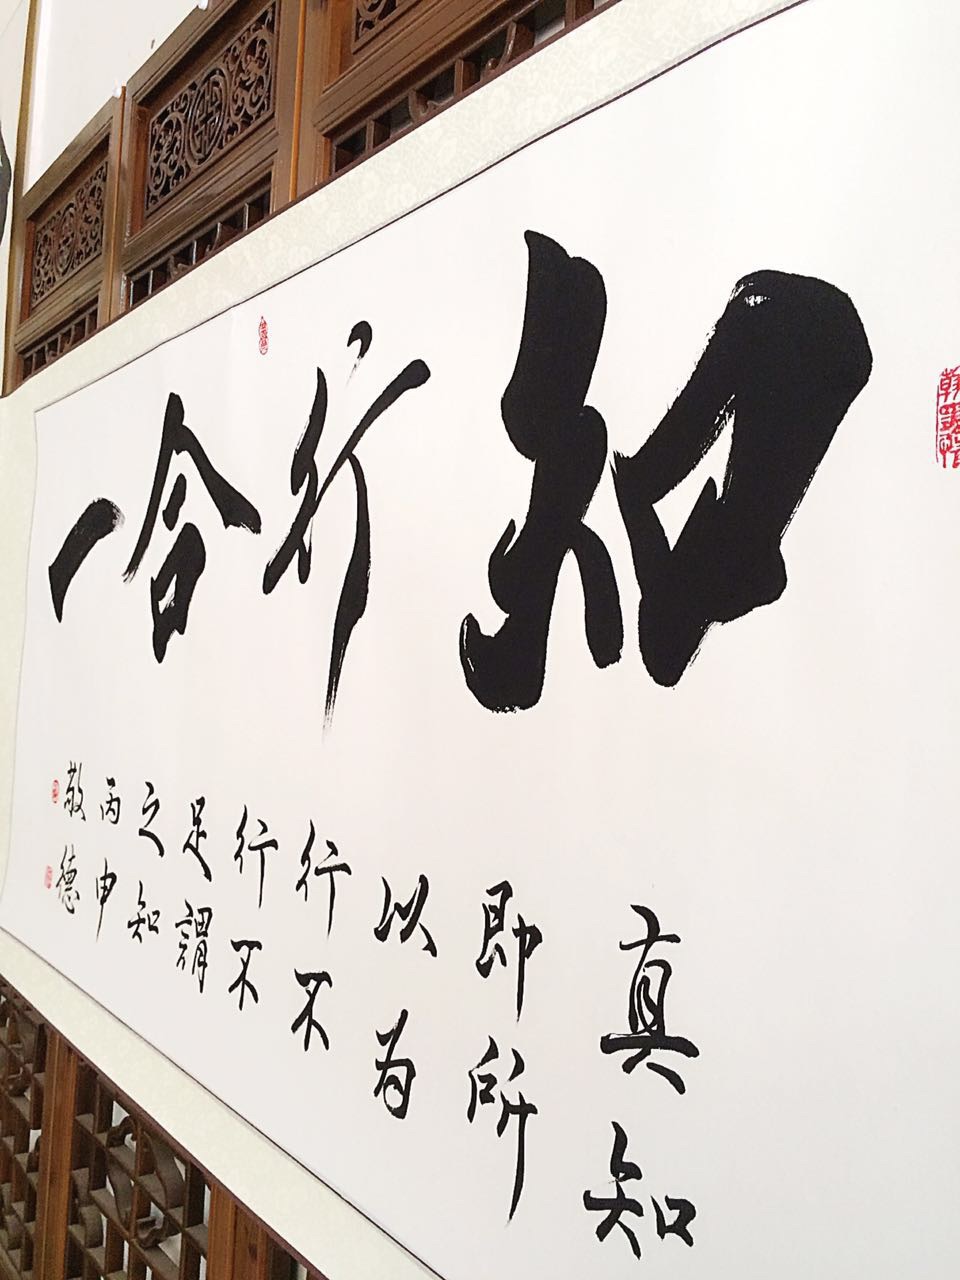 知行合一
真知
即所
以为
行行
不不
足謂
之知
丙申
敬德